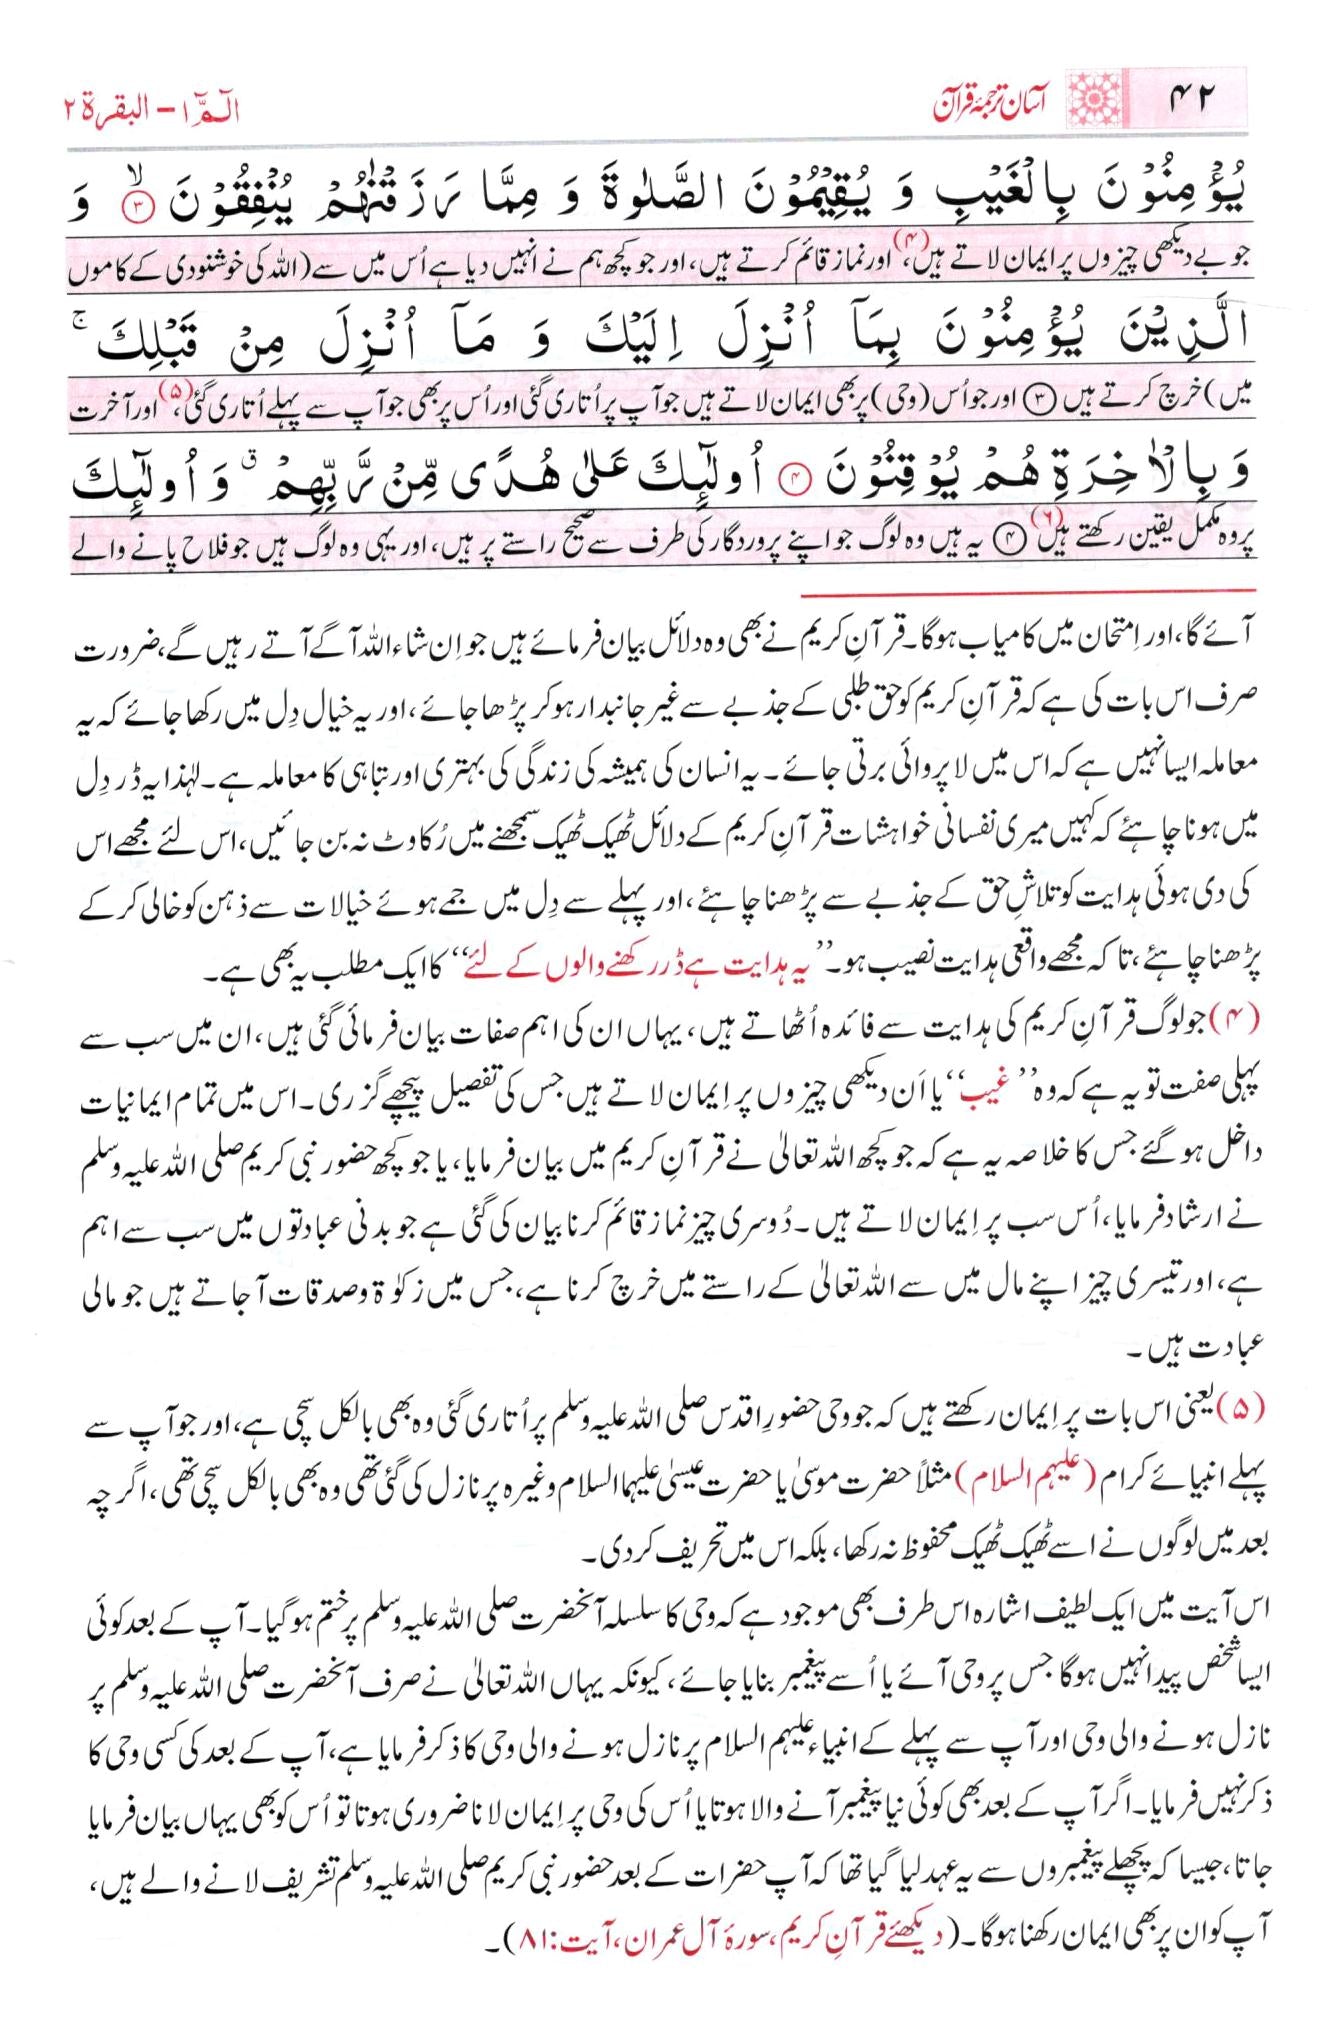 ۴۲ آسان ترجمۂ قرآن الٓـمّٓ ۱ – البقرۃ ۲
يُؤْمِنُوْنَ بِالْغَيْبِ وَ يُقِيْمُوْنَ الصَّلٰوةَ وَ مِمَّا رَزَقْنٰهُمْ يُنْفِقُوْنَ ۙ﴿۳﴾ وَ
جو بے دیکھی چیزوں پر ایمان لاتے ہیں،(۴) اور نماز قائم کرتے ہیں، اور جو کچھ ہم نے انہیں دیا ہے اُس میں سے (اللہ کی خوشنودی کے کاموں
الَّذِيْنَ يُؤْمِنُوْنَ بِمَاۤ اُنْزِلَ اِلَيْكَ وَ مَاۤ اُنْزِلَ مِنْ قَبْلِكَ ۚ
میں) خرچ کرتے ہیں ﴿۳﴾ اور جو اُس (وحی) پر بھی ایمان لاتے ہیں جو آپ پر اُتاری گئی اور اُس پر بھی جو آپ سے پہلے اُتاری گئی،(۵) اور آخرت
وَ بِالْاٰخِرَةِ هُمْ يُوْقِنُوْنَ ﴿۴﴾ اُولٰٓئِكَ عَلٰى هُدًى مِّنْ رَّبِّهِمْ ۗ وَ اُولٰٓئِكَ
پر وہ مکمل یقین رکھتے ہیں(۶) ﴿۴﴾ یہ ہیں وہ لوگ جو اپنے پروردگار کی طرف سے صحیح راستے پر ہیں، اور یہی وہ لوگ ہیں جو فلاح پانے والے
آئے گا، اور اِمتحان میں کامیاب ہوگا۔ قرآنِ کریم نے بھی وہ دلائل بیان فرمائے ہیں جو اِن شاء اللہ آگے آتے رہیں گے، ضرورت
صرف اس بات کی ہے کہ قرآنِ کریم کو حق طلبی کے جذبے سے غیر جانبدار ہو کر پڑھا جائے، اور یہ خیال دِل میں رکھا جائے کہ یہ
معاملہ ایسا نہیں ہے کہ اس میں لاپروائی برتی جائے۔ یہ انسان کی ہمیشہ کی زندگی کی بہتری اور تباہی کا معاملہ ہے۔ لہٰذا یہ ڈر دِل
میں ہونا چاہئے کہ کہیں میری نفسانی خواہشات قرآنِ کریم کے دلائل ٹھیک ٹھیک سمجھنے میں رُکاوٹ نہ بن جائیں، اس لئے مجھے اس
کی دی ہوئی ہدایت کو تلاشِ حق کے جذبے سے پڑھنا چاہئے، اور پہلے سے دِل میں جمے ہوئے خیالات سے ذہن کو خالی کر کے
پڑھنا چاہئے، تاکہ مجھے واقعی ہدایت نصیب ہو۔ ’’یہ ہدایت ہے ڈر رکھنے والوں کے لئے‘‘ کا ایک مطلب یہ بھی ہے۔
(۴) جو لوگ قرآنِ کریم کی ہدایت سے فائدہ اُٹھاتے ہیں، یہاں ان کی اہم صفات بیان فرمائی گئی ہیں، ان میں سب سے
پہلی صفت تو یہ ہے کہ وہ ’’غیب‘‘ یا اَن دیکھی چیزوں پر اِیمان لاتے ہیں جس کی تفصیل پیچھے گزری۔ اس میں تمام ایمانیات
داخل ہوگئے جس کا خلاصہ یہ ہے کہ جو کچھ اللہ تعالیٰ نے قرآنِ کریم میں بیان فرمایا، یا جو کچھ حضور نبی کریم صلی اللہ علیہ وسلم
نے ارشاد فرمایا، اُس سب پر اِیمان لاتے ہیں۔ دُوسری چیز نماز قائم کرنا بیان کی گئی ہے جو بدنی عبادتوں میں سب سے اہم
ہے، اور تیسری چیز اپنے مال میں سے اللہ تعالیٰ کے راستے میں خرچ کرنا ہے، جس میں زکوٰۃ و صدقات آجاتے ہیں جو مالی
عبادت ہیں۔
(۵) یعنی اس بات پر اِیمان رکھتے ہیں کہ جو وحی حضورِ اقدس صلی اللہ علیہ وسلم پر اُتاری گئی وہ بھی بالکل سچی ہے، اور جو آپ سے
پہلے انبیائے کرام (علیہم السلام) مثلاً حضرت موسیٰ یا حضرت عیسیٰ علیہما السلام وغیرہ پر نازل کی گئی تھی وہ بھی بالکل سچی تھی، اگرچہ
بعد میں لوگوں نے اسے ٹھیک ٹھیک محفوظ نہ رکھا، بلکہ اس میں تحریف کردی۔
اس آیت میں ایک لطیف اشارہ اس طرف بھی موجود ہے کہ وحی کا سلسلہ آنحضرت صلی اللہ علیہ وسلم پر ختم ہوگیا۔ آپ کے بعد کوئی
ایسا شخص پیدا نہیں ہوگا جس پر وحی آئے یا اُسے پیغمبر بنایا جائے، کیونکہ یہاں اللہ تعالیٰ نے صرف آنحضرت صلی اللہ علیہ وسلم پر
نازل ہونے والی وحی اور آپ سے پہلے کے انبیاء علیہم السلام پر نازل ہونے والی وحی کا ذکر فرمایا ہے، آپ کے بعد کی کسی وحی کا
ذکر نہیں فرمایا۔ اگر آپ کے بعد بھی کوئی نیا پیغمبر آنے والا ہوتا یا اُس کی وحی پر اِیمان لانا ضروری ہوتا تو اُس کو بھی یہاں بیان فرمایا
جاتا، جیسا کہ پچھلے پیغمبروں سے یہ عہد لیا گیا تھا کہ آپ حضرات کے بعد حضور نبی کریم صلی اللہ علیہ وسلم تشریف لانے والے ہیں،
آپ کو ان پر بھی ایمان رکھنا ہوگا۔ (دیکھئے قرآنِ کریم، سورۂ آل عمران، آیت:۸۱)۔